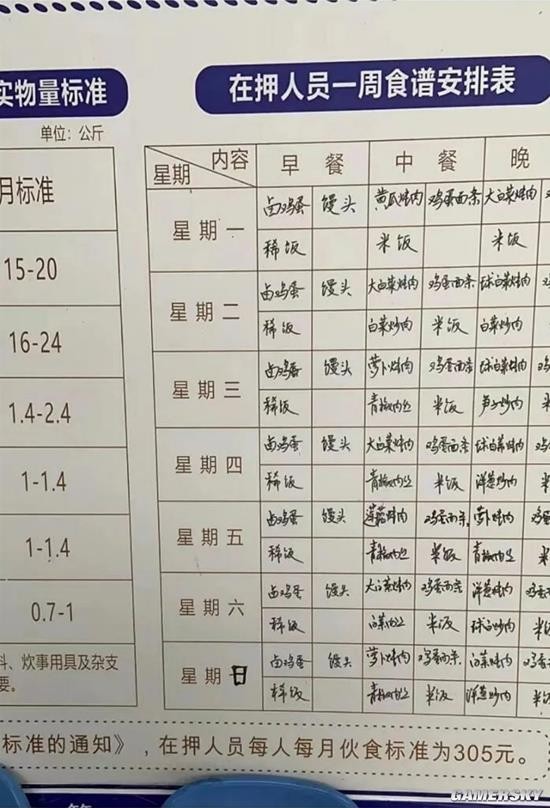 实物量标准
在押人员一周食谱安排表
单位：公斤
月标准
15-20
16-24
1.4-2.4
1-1.4
1-1.4
0.7-1
料、炊事用具及杂支
要。
星期 内容 早餐 中餐 晚
星期一 卤鸡蛋 馒头 黄瓜炖肉 鸡蛋面条 大白菜炖肉
稀饭 米饭 米饭
星期二 卤鸡蛋 馒头 大白菜炖肉 鸡蛋面条 球白菜炖肉
稀饭 白菜炒肉 米饭 白菜炒肉
星期三 卤鸡蛋 馒头 萝卜炖肉 鸡蛋面条 球白菜炖肉
稀饭 青椒肉丝 米饭 笋子炒肉
星期四 卤鸡蛋 馒头 大白菜炖肉 鸡蛋面条 球白菜炖肉
稀饭 青椒肉丝 米饭 洋葱炒肉
星期五 卤鸡蛋 馒头 炖肉 鸡蛋面条 萝卜炖肉 鸡蛋
稀饭 青椒肉丝 米饭 青椒肉丝 米
星期六 卤鸡蛋 馒头 大白菜炖肉 鸡蛋面条 洋葱炒肉 鸡蛋
稀饭 白菜肉丝 米饭 米饭
星期日 卤鸡蛋 馒头 萝卜炖肉 鸡蛋面条 白菜炖肉 鸡蛋
稀饭 青椒肉丝 米饭 洋葱炒肉 米
标准的通知》，在押人员每人每月伙食标准为305元。
GAMERSKY